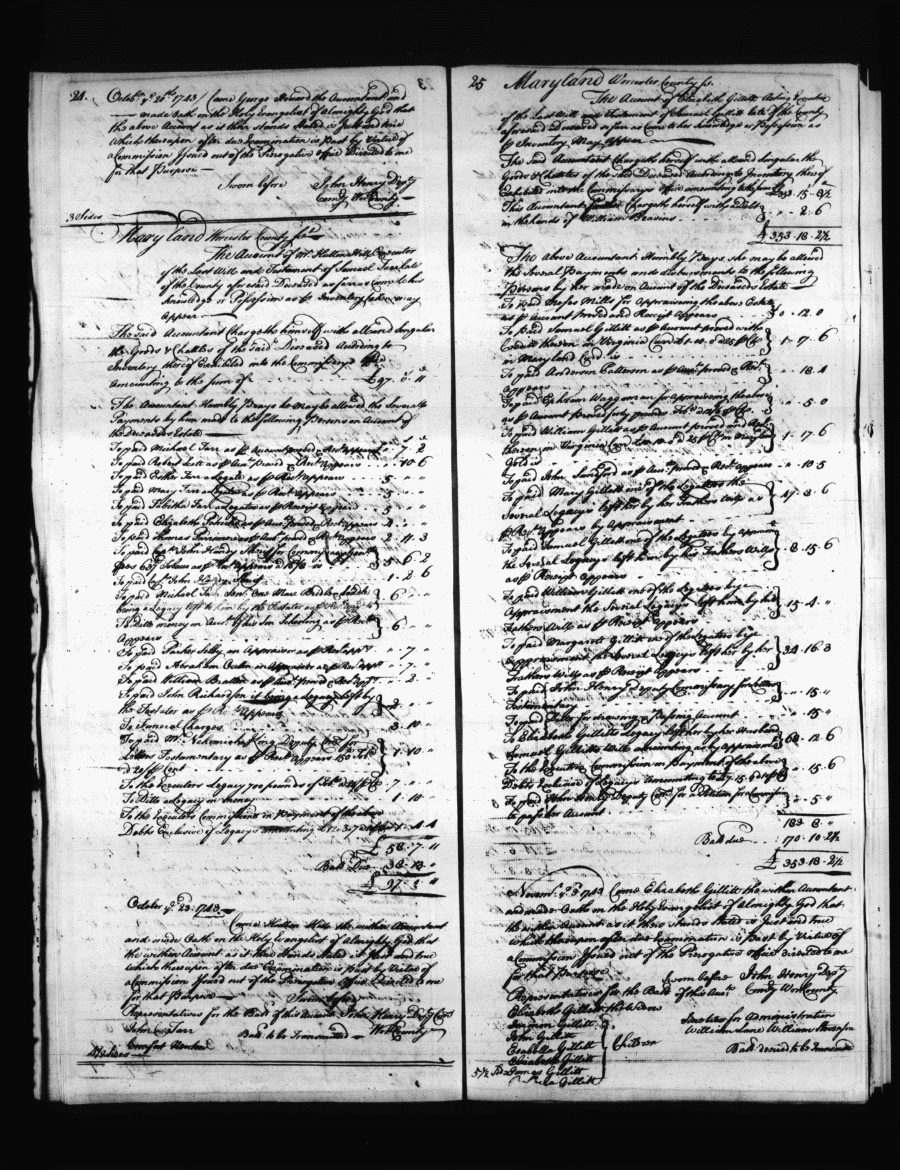 24.
Octobr. ye 20th 1743 / Came George Howard the Accountant and
made Oath on the Holy Evangelist of Almighty God that
the above Account as it there Stands Stated is Just and true
Which thereupon after due Examination is Past by Virtue of
a Commission Issued out of the Prerogative Office Directed to me
for that Purpose
Sworn before John Henry Depty
Comry Worr County
3 Sides
Maryland Worcester County Sst.
The Account of Mr. Hutton Hill Executor
of the Last Will and Testament of Samuel Tarr late
of the County aforesaid Deceased as far as Came to his
knowledge or Possession as pr Inventory may
Appear
The said Accountant Chargeth himself with all and Singular
the Goods & Chattles of the said Deceased According to
Inventory thereof Exhibited into the Comissarys Office
amounting to the sum of £97. 0. 11
The Accountant Humbly Prays he may be allowed the several
Payments by him made to the following Persons on Account of
the Deceaseds Estate
To paid Michael Tarr as pr Account proved & Rect. appears 7. 2
To paid Robert Lott as pr Acct. proved & Rect. Appears 10. 6
To paid Esther Tarr a Legate as pr Rect. Appears 5
To paid Mary Tarr a Legatee as pr Rect. Appears 5
To paid Tabitha Tarr a Legatee as pr Receipt Appears 5
To paid Elizabeth as pr Acct. proved & Rect. Appears 4
To paid Thomas Purnell as pr Acct. proved & Rect. Appears 2. 11. 3
To paid Capt. John Handy Sheriff
fees 637 Tobacco as pr Rect. Appears 5. 6. 2
To paid Capt. John Handy Sheriff 1. 2. 6
To paid Michael Tarr Senr. One Mare Bridle & Saddle
being a Legacy left to him by the Testator as pr Rect. Appears 6
To Ditto money on Acct. of his Son Schooling as pr Rect.
Appears 6
To paid Parker Selby an Appraiser as pr Rect. appears 7
To paid Abraham Outen an Appraiser as pr Rect. appears 7
To paid William Bratten as pr Acct. proved & Rect. appears 2
To paid John Richardson a Legacy left by
the Testator as pr Rect. Appears 2
To Funeral Charges 3. 10
To paid Mr. Nehemiah King Deputy Comry for
Letters Testamentary as pr Rect. Appears 150 Tobo
1. 10
To the Executors Legacy 700 pounds of Tobo. 7
To Ditto a Legacy in money 1. 10
To the Executors Commissions on Payment of the above
Debts Exclusive of Legacys amounting 1. 4. 4
£58. 7. 11
Ball. Due 38. 13
£97. 0. 11
October ye 23: 1743.
Came Hutton Hill the within Accountant
and made Oath on the Holy Evangelist of Almighty God that
the within Account as it there Stands Stated is Just and true
which thereupon after due Examination is Past by Virtue of
a Commission Issued out of the Prerogative Office Directed to me
for that Purpose Sworn before
Representatives for the Ball. of this Account John Henry Depty Comry
John Tarr Ball. to be Transmitted Worr County
Comfort Newton
Sides
25
Maryland Worcester County Ss.
The Account of Elizabeth Gillitt Acting Executrix
of the Last Will and Testament of Samuel Gillitt late of the County
aforesaid Deceased as far as Came to her knowledge or Possession as
pr Inventory May Appear
The said Accountant Chargeth herself with all and Singular the
Goods & Chattles of the said Deceased According to Inventory thereof
Exhibited into the Commissarys Office amounting to the sum of 353. 15. 8½
This Accountant further Chargeth herself with a Debt
in the hands of William Beavens 2. 6
£353. 18. 2½
The above Accountant Humbly Prays she may be allowed
the several Payments and disbursements to the following
Persons by her made on Account of the Deceaseds Estate
To paid Moses Mills for Appraising the above Estate
as pr Account proved and Receipt Appears 0. 12. 0
To paid Samuel Gillitt as pr Account proved with a
Credit thereon in Virginia Curr.
in Maryland Curr. is 1. 17. 6
To paid Anderson Patterson as pr Acct. proved & Rect.
Appears 18. 4
To paid Ephraim Waggoman for Appraising the above
as pr Account Proved forty pounds Tobo. 5. 0
To paid William Gillitt as pr Account proved and Rect.
thereon in Virginia Curr. in Maryland
Gold is 1. 17. 6
To paid John Lunsford as pr Acct. proved & Rect. Appears 10. 5
To paid Mary Gillitt one of the Legatees the
Several Legacys left her by her Fathers Will as
pr Rect. Appears by Appraisment 47. 3. 6
To paid Samuel Gillitt one of the Legatees by Appraisment
the Several Legacys left him by his Fathers Will
as pr Receipt Appears 8. 15. 6
To paid William Gillitt one of the Legatees by
Appraisement the Several Legacys left him by his
Fathers Will as pr Receipt Appears 15. 4
To paid Margarett Gillitt one of the Legatees by
Appraisement the Several Legacys left her by her
Fathers Will as pr Receipt Appears 34. 16. 3
To paid John Henry Deputy Commissary for Letters
Testamentary 15
To paid Ditto for drawing & Passing Account 15
To Elizabeth Gillitts Legacy left her by her Husband
Samuel Gillitts Will amounting as by Appraisment 68. 12. 6
To the Executrix Commissions on Payment of the above
Debts Exclusive of Legacys Amounting to £7. 15. 6 15. 6
To paid John Henry Deputy Comry for a Petition for Commission
to pass her Account 5
183. 8
Ball. due 170. 10. 2½
£353. 18. 2½
Novemr. ye 3d 1743 Came Elizabeth Gillitt the within Accountant
and made Oath on the Holy Evangelist of Almighty God that
the within Account as it there Stands Stated is Just and true
which thereupon after due Examination is Past by Virtue of
a Commission Issued out of the Prerogative Office directed to me
for that Purpose Sworn before John Henry Depty
Representatives for the Ball. of this Acct. Comry Worr County
Elizabeth Gillitt the Widow
Gillitt
John Gillitt
Arabella Gillitt
Elizabeth Gillitt
James Gillitt
Gillitt
Children
Securities for Administration
William Lane William Stevenson
Ball. desired to be Transmitted
5½ Sides